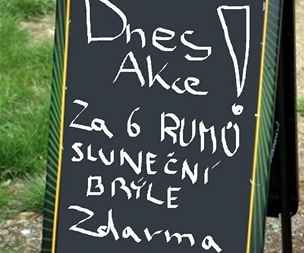 Dnes!
Akce
Za 6 RUMŮ
SLUNEČNÍ
BRÝLE
Zdarma